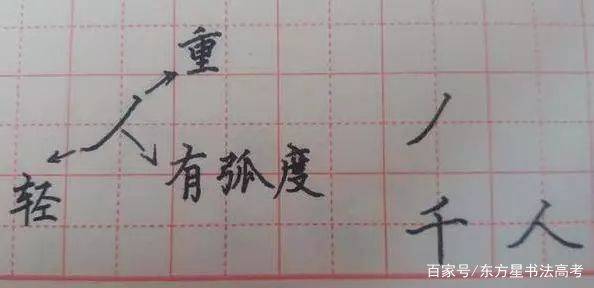 重
丿
有弧度
轻
千 人
百家号/东方星书法高考